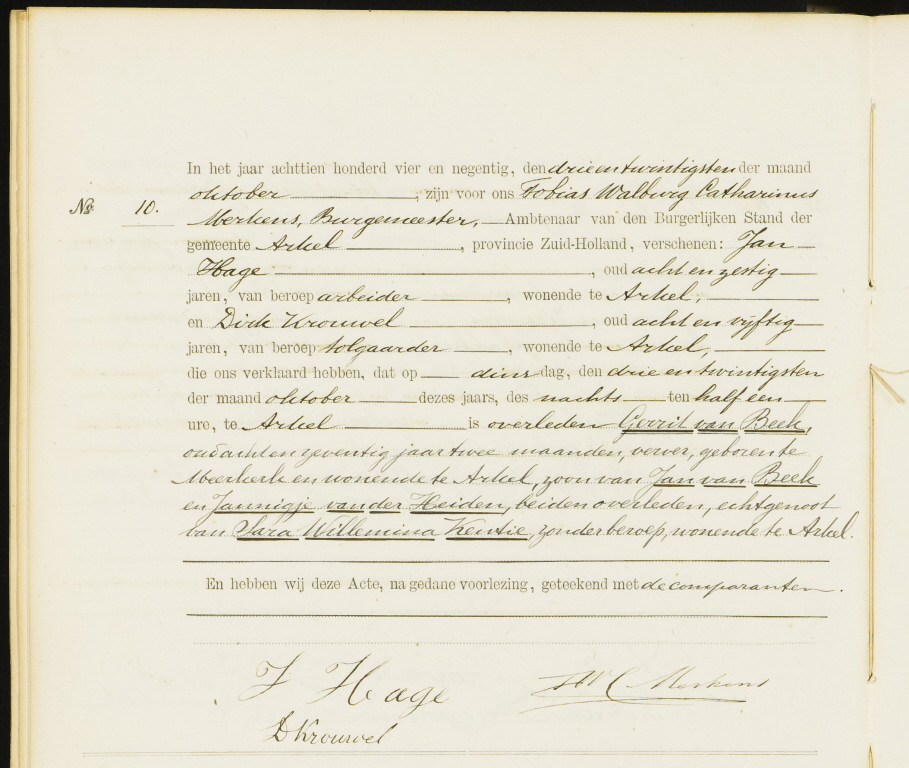 In het jaar achttien honderd vier en negentig, den drie en twintigsten der maand
oktober, zijn voor ons Tobias Walburg Catharinus
No 10. Merkens, Burgemeester, Ambtenaar van den Burgerlijken Stand der
gemeente Arkel, provincie Zuid-Holland, verschenen: Jan
Hage, oud acht en zestig
jaren, van beroep arbeider, wonende te Arkel,
en Dirk Krouwel, oud acht en vijftig
jaren, van beroep tolgaarder, wonende te Arkel,
die ons verklaard hebben, dat op dinsdag, den drie en twintigsten
der maand oktober dezes jaars, des nachts ten half een
ure, te Arkel is overleden Gerrit van Beek,
oud acht en zeventig jaar twee maanden, verver, geboren te
Meerkerk en wonende te Arkel, zoon van Jan van Beek
en Jannigje van der Heiden, beiden overleden, echtgenoot
van Sara Willemina Kentie, zonder beroep, wonende te Arkel.
En hebben wij deze Acte, na gedane voorlezing, geteekend met de comparanten.
J Hage TWC Merkens
D Krouwel